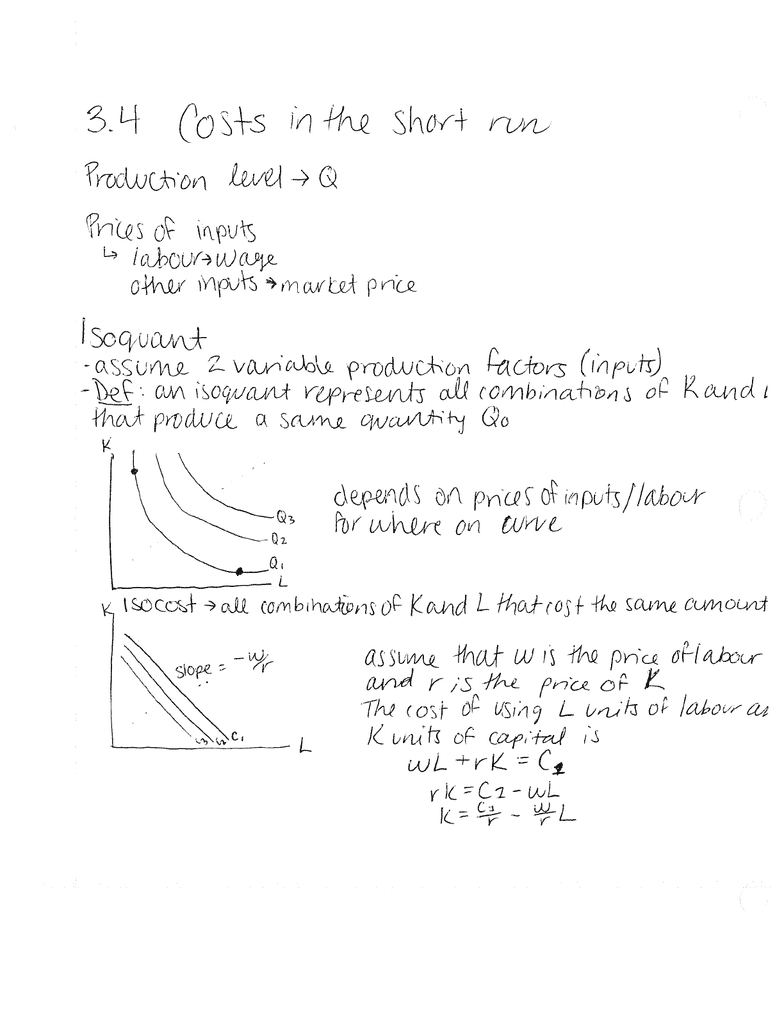 3.4 Costs in the short run
Production level → Q
Prices of inputs
↳ labour→wage
other inputs → market price
Isoquant
- assume 2 variable production factors (inputs)
- Def: an isoquant represents all combinations of K and
that produce a same quantity Q₀
K
Q₃
Q₂
Q₁
L
depends on prices of inputs/labour
for where on curve
Isocost → all combinations of K and L that cost the same amount
K
slope = -w/r
C₁
L
assume that w is the price of labour
and r is the price of K
The cost of using L units of labour
K units of capital is
wL + rK = C
rK = C₂ - wL
K = /r - w/r L